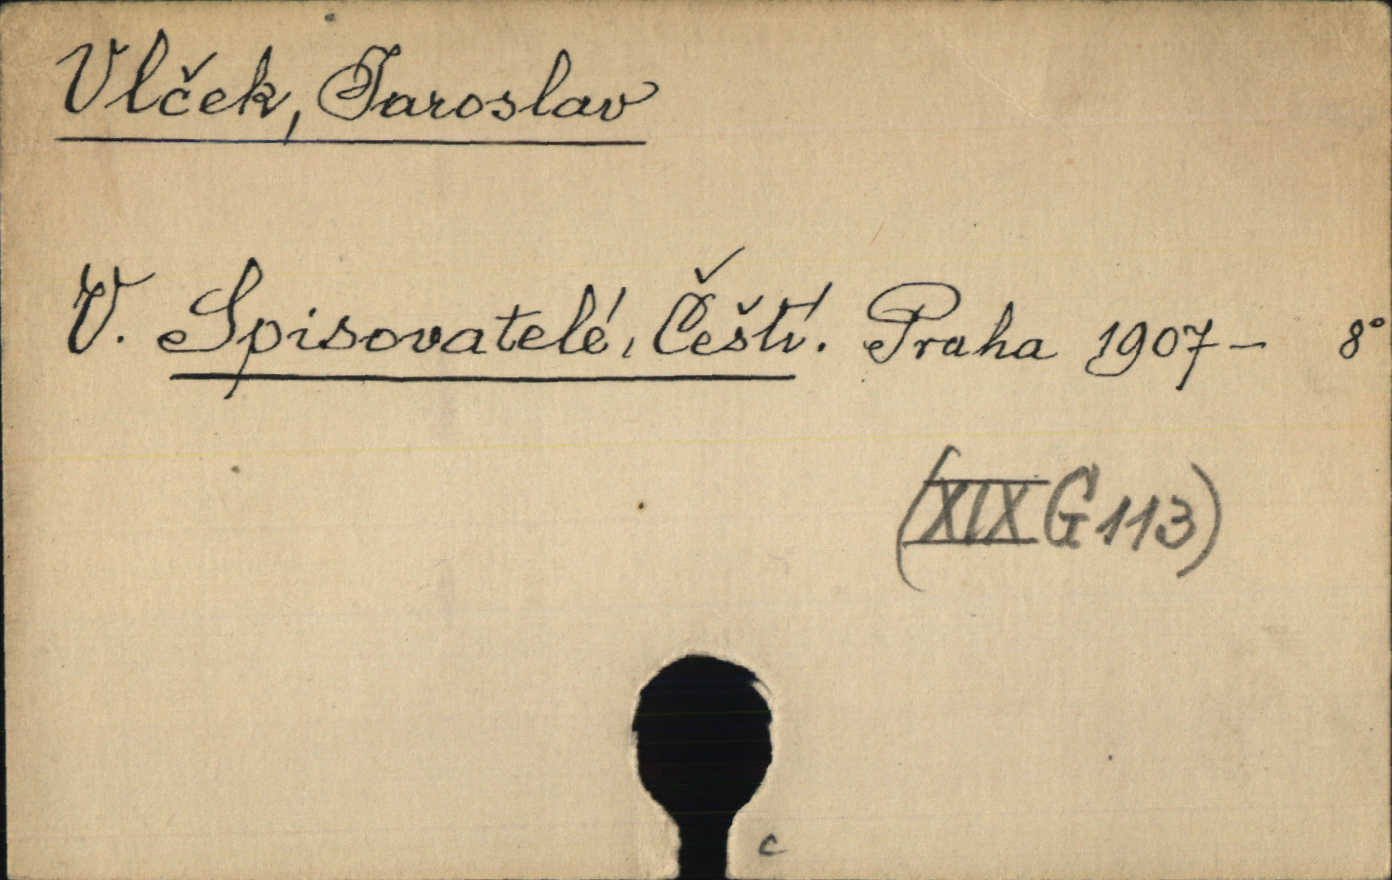 Vlček, Jaroslav
V. Spisovatelé, Čeští. Praha 1907– 8°
(XIX G 113)
c